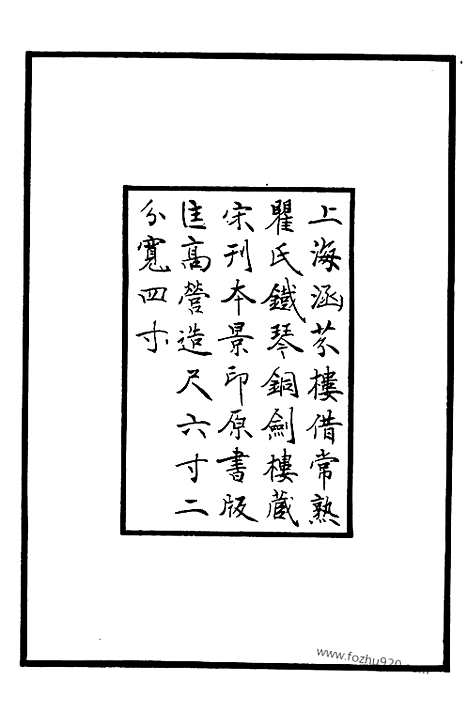 上海涵芬樓借常熟
瞿氏鐵琴銅劍樓藏
宋刊本景印原書版
匡高營造尺六寸二
分寬四寸
www.fozhu920.com